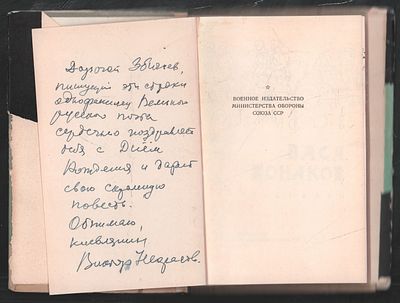 Дорогой Збигнев,
пишущий эти строки
однофамилец Великого
русского поэта
сердечно поздравляет
тебя с Днём
Рождения и дарит
свою скромную
повесть.
Обнимаю,
киевлянин
Виктор Некрасов.
ВОЕННОЕ ИЗДАТЕЛЬСТВО
МИНИСТЕРСТВА ОБОРОНЫ
СОЮЗА ССР